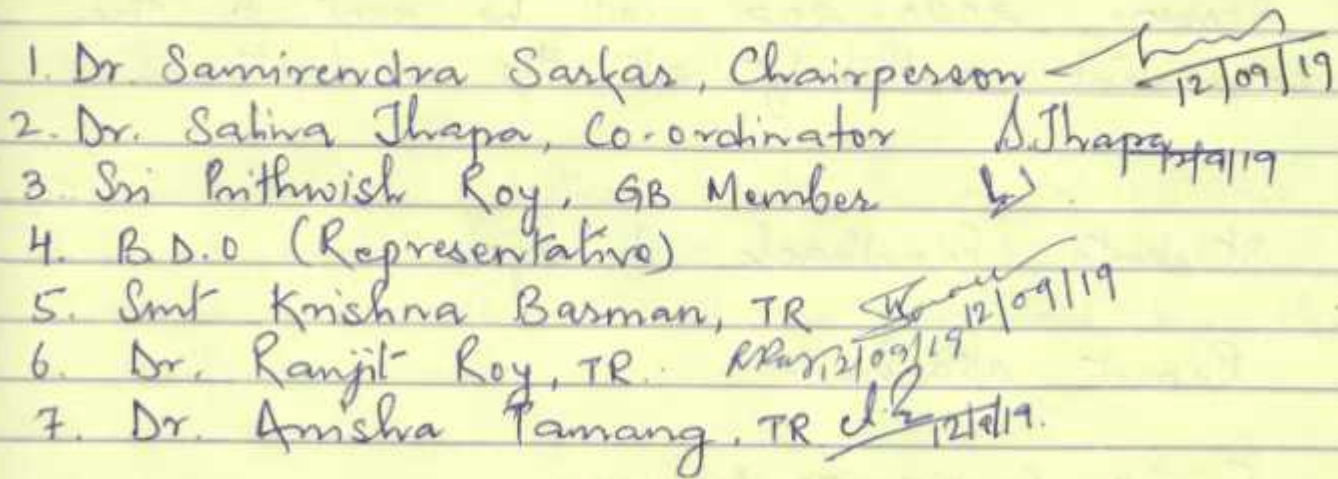 1. Dr. Samirendra Sarkar, Chairperson 12/09/19
2. Dr. Salina Thapa, Co-ordinator S.Thapa 12/9/19
3. Sri Prithwish Roy, GB Member
4. B.D.O (Representative)
5. Smt Krishna Barman, TR 12/09/19
6. Dr. Ranjit Roy, TR. RRoy 12/09/19
7. Dr. Anisha Tamang, TR 12/9/19.